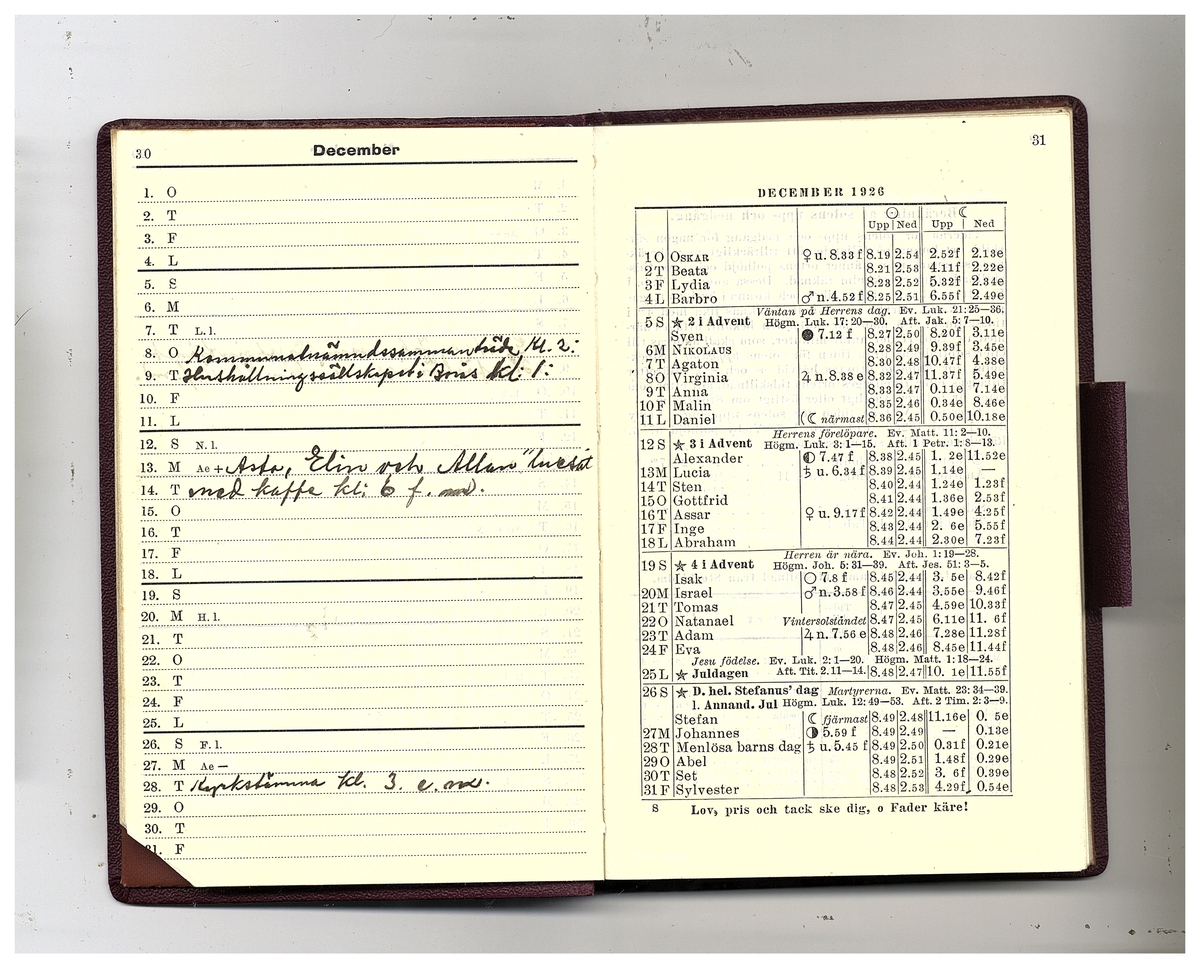 30 December
1. O
2. T
3. F
4. L
5. S
6. M
7. T L. l.
8. O Kommunalnämndssammanträde kl. 2:
9. T Hushållningssällskapet i Borås kl: 1:
10. F
11. L
12. S N. l.
13. M Ae + Asta, Elin och Allan "lucsat
14. T med kaffe kl: 6 f. m.
15. O
16. T
17. F
18. L
19. S
20. M H. l.
21. T
22. O
23. T
24. F
25. L
26. S F. l.
27. M Ae —
28. T Kyrkstämma kl. 3. e. m.
29. O
30. T
31. F
31
DECEMBER 1926
☉ ☾
Upp Ned Upp Ned
1 O OSKAR ♀ u. 8.33 f 8.19 2.54 2.52f 2.13e
2 T Beata 8.21 2.53 4.11f 2.22e
3 F Lydia 8.23 2.52 5.32f 2.34e
4 L Barbro ♂ n. 4.52 f 8.25 2.51 6.55f 2.49e
Väntan på Herrens dag. Ev. Luk. 21: 25—36.
5 S ★ 2 i Advent Högm. Luk. 17: 20—30. Aft. Jak. 5: 7—10.
Sven ● 7.12 f 8.27 2.50 8.20f 3.11e
6 M NIKOLAUS 8.28 2.49 9.39f 3.45e
7 T Agaton 8.30 2.48 10.47f 4.38e
8 O Virginia ♃ n. 8.38 e 8.32 2.47 11.37f 5.49e
9 T Anna 8.33 2.47 0.11e 7.14e
10 F Malin 8.35 2.46 0.34e 8.46e
11 L Daniel ☾ närmast 8.36 2.45 0.50e 10.18e
Herrens förelöpare. Ev. Matt. 11: 2—10.
12 S ★ 3 i Advent Högm. Luk. 3: 1—15. Aft. 1 Petr. 1: 8—13.
Alexander ◐ 7.47 f 8.38 2.45 1. 2e 11.52e
13 M Lucia ♄ u. 6.34 f 8.39 2.45 1.14e —
14 T Sten 8.40 2.44 1.24e 1.23f
15 O Gottfrid 8.41 2.44 1.36e 2.53f
16 T Assar ♀ u. 9.17 f 8.42 2.44 1.49e 4.25f
17 F Inge 8.43 2.44 2. 6e 5.55f
18 L Abraham 8.44 2.44 2.30e 7.23f
Herren är nära. Ev. Joh. 1: 19—28.
19 S ★ 4 i Advent Högm. Joh. 5: 31—39. Aft. Jes. 51: 3—5.
Isak ○ 7.8 f 8.45 2.44 3. 5e 8.42f
20 M Israel ♂ n. 3.58 f 8.46 2.44 3.55e 9.46f
21 T Tomas 8.47 2.45 4.59e 10.33f
22 O Natanael Vintersolståndet 8.47 2.45 6.11e 11. 6f
23 T Adam ♃ n. 7.56 e 8.48 2.46 7.28e 11.28f
24 F Eva 8.48 2.46 8.45e 11.44f
Jesu födelse. Ev. Luk. 2: 1—20. Högm. Matt. 1: 18—24.
25 L ★ Juldagen Aft. Tit. 2. 11—14. 8.48 2.47 10. 1e 11.55f
26 S ★ D. hel. Stefanus' dag Martyrerna. Ev. Matt. 23: 34—39.
l. Annand. Jul Högm. Luk. 12: 49—53. Aft. 2 Tim. 2: 3—9.
Stefan ☾ fjärmast 8.49 2.48 11.16e 0. 5e
27 M Johannes ◑ 5.59 f 8.49 2.49 — 0.13e
28 T Menlösa barns dag ♄ u. 5.45 f 8.49 2.50 0.31f 0.21e
29 O Abel 8.49 2.51 1.48f 0.29e
30 T Set 8.48 2.52 3. 6f 0.39e
31 F Sylvester 8.48 2.53 4.29f 0.54e
8 Lov, pris och tack ske dig, o Fader käre!